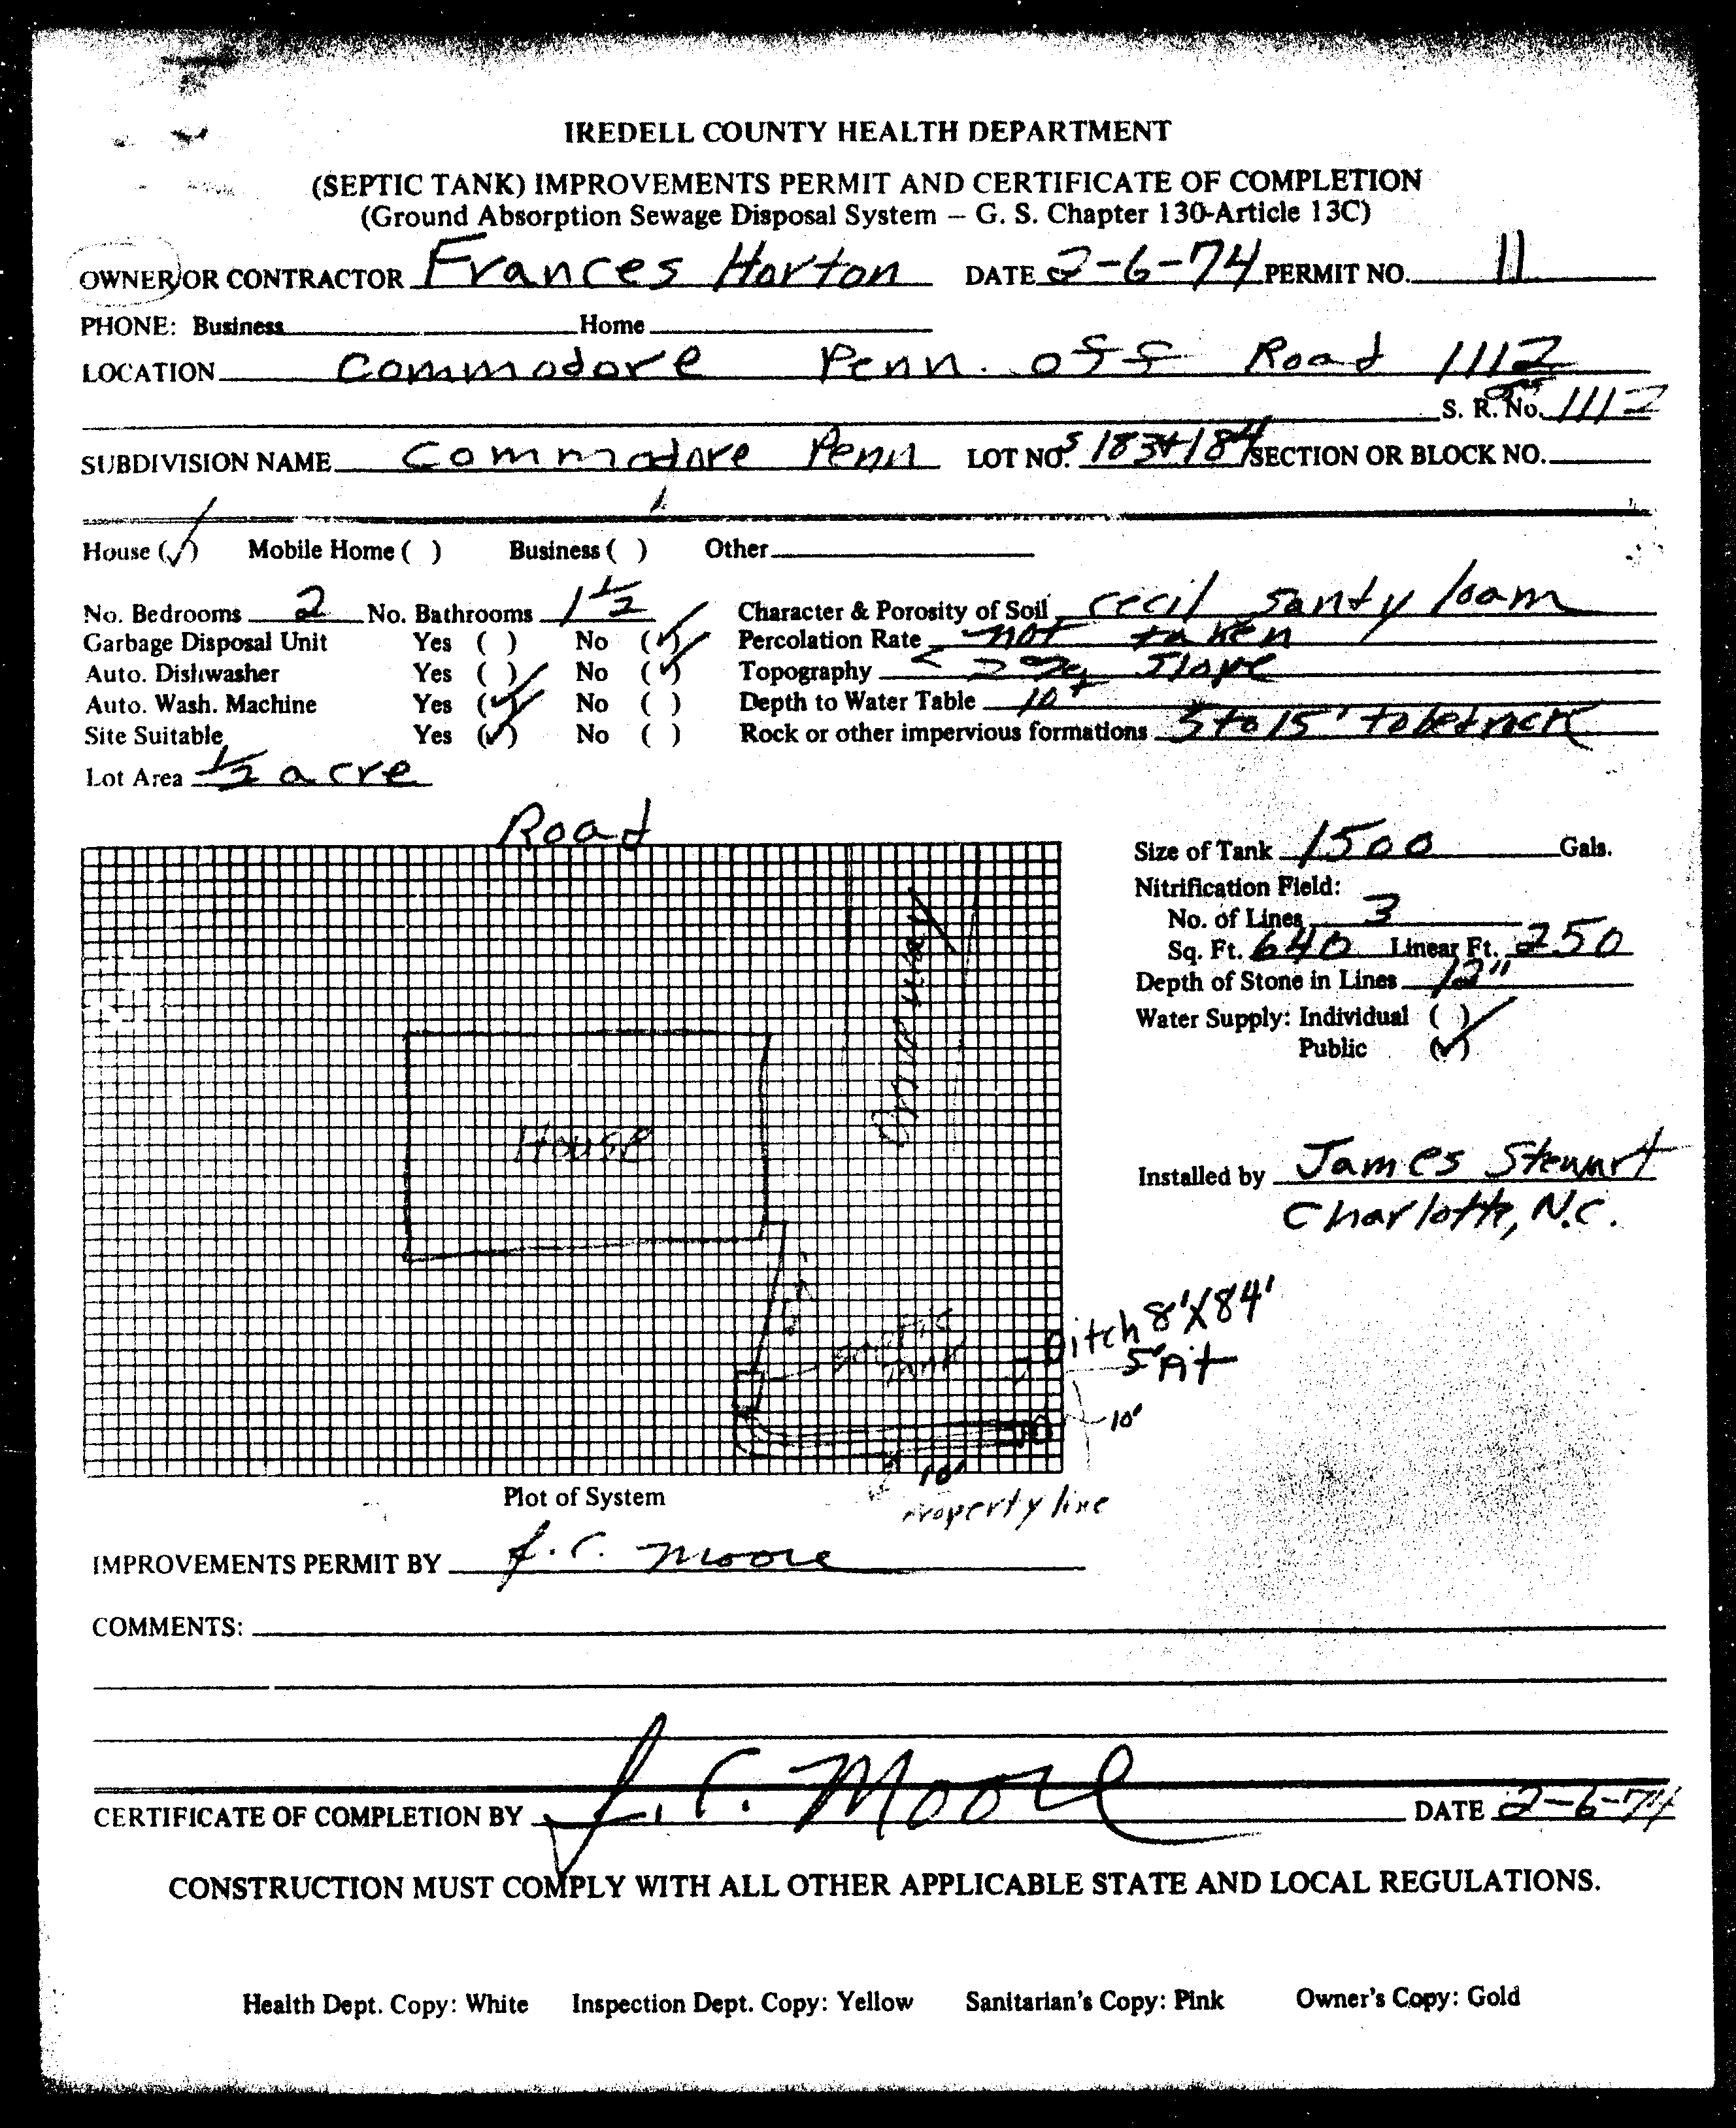 IREDELL COUNTY HEALTH DEPARTMENT
(SEPTIC TANK) IMPROVEMENTS PERMIT AND CERTIFICATE OF COMPLETION
(Ground Absorption Sewage Disposal System – G. S. Chapter 130-Article 13C)
OWNER/OR CONTRACTOR Frances Horton DATE 2-6-74 PERMIT NO. 11
PHONE: Business Home
LOCATION Commodore Penn. off Road 1112
S. R. No. 1112
SUBDIVISION NAME Commodore Penn LOT NO.S 183+184 SECTION OR BLOCK NO.
House (✓) Mobile Home ( ) Business ( ) Other
No. Bedrooms 2 No. Bathrooms 1 1/2 Character & Porosity of Soil cecil sandy loam
Garbage Disposal Unit Yes ( ) No (✓) Percolation Rate not taken
Auto. Dishwasher Yes ( ) No (✓) Topography < 2% Slope
Auto. Wash. Machine Yes (✓) No ( ) Depth to Water Table 10+
Site Suitable Yes (✓) No ( ) Rock or other impervious formations 5 to 15' to bedrock
Lot Area 1/2 acre
Road
Size of Tank 1500 Gals.
Nitrification Field:
No. of Lines 3
Sq. Ft. 640 Linear Ft. 250
Depth of Stone in Lines 12"
Water Supply: Individual ( )
Public (✓)
Drive way
House
Installed by James Stewart
Charlotte, N.C.
Septic
Tank
Ditch 8'X84'
5' Pit
10'
10'
Property line
Plot of System
IMPROVEMENTS PERMIT BY J.C. Moore
COMMENTS:
CERTIFICATE OF COMPLETION BY J.C. Moore DATE 2-6-74
CONSTRUCTION MUST COMPLY WITH ALL OTHER APPLICABLE STATE AND LOCAL REGULATIONS.
Health Dept. Copy: White Inspection Dept. Copy: Yellow Sanitarian's Copy: Pink Owner's Copy: Gold